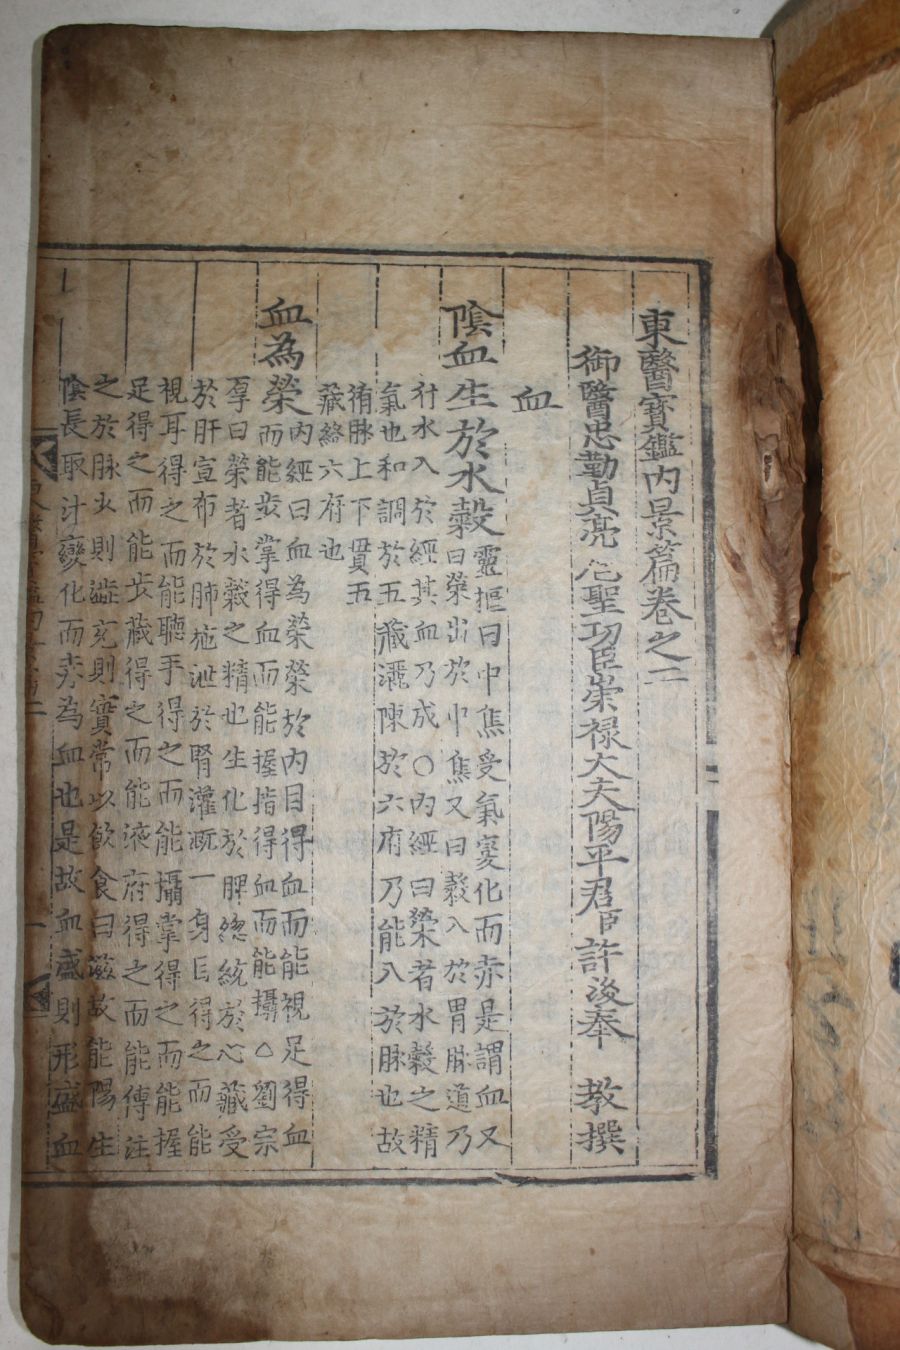 東醫寶鑑內景篇卷之二
御醫忠勤貞亮扈聖功臣崇祿大夫陽平君臣許浚奉 敎撰
血
陰血生於水穀靈樞曰中焦受氣變化而赤是謂血又
曰榮出於中焦又曰穀入於胃脉道乃
行水入於經其血乃成○內經曰榮者水穀之精
氣也和調於五藏灑陳於六府乃能入於脉也故
循脉上下貫五
藏絡六府也
血為榮內經曰血為榮榮於內目得血而能視足得血
而能步掌得血而能握指得血而能攝△劉宗
厚曰榮者水穀之精也生化於脾緫統於心藏受
於肝宣布於肺施泄於腎灌漑一身目得之而能
視耳得之而能聽手得之而能攝掌得之而能握
足得之而能步藏得之而能液府得之而能傳注
之於脉少則澁充則實常以飮食日滋故能陽生
陰長取汁變化而赤為血也是故血盛則形盛血